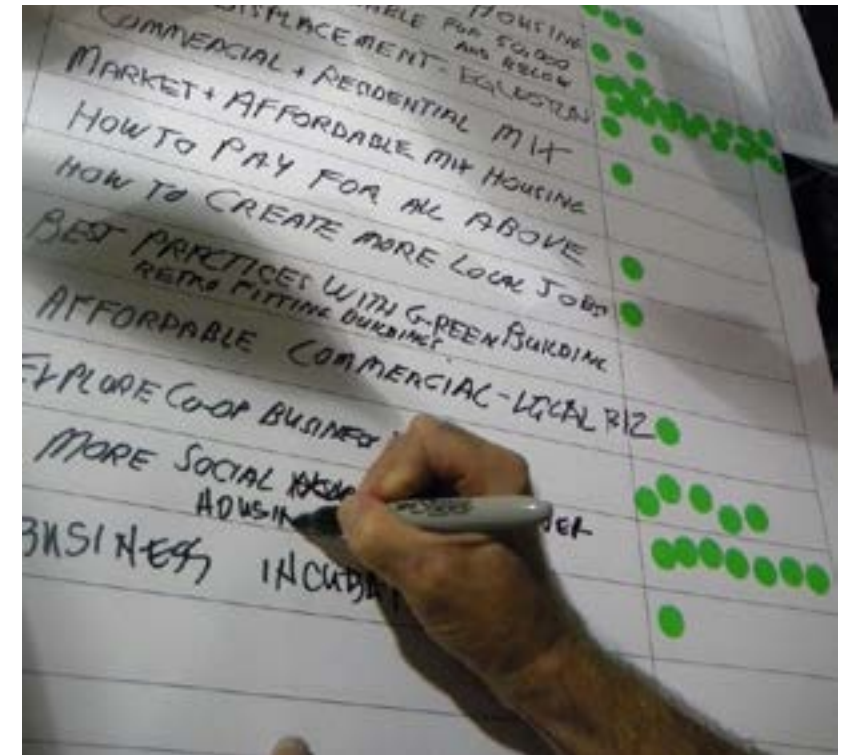 HOUSING
FOR 50,000
AND BELOW
DISPLACEMENT - EGLESTON
COMMERCIAL + RESIDENTIAL MIX
MARKET + AFFORDABLE MIX HOUSING
HOW TO PAY FOR ALL ABOVE
HOW TO CREATE MORE LOCAL JOBS
BEST PRACTICES WITH GREEN BUILDING
RETRO FITTING BUILDINGS
AFFORDABLE COMMERCIAL - LOCAL BIZ
EXPLORE CO-OP BUSINESS
MORE SOCIAL
HOUSIN
BUSINESS INCUBA